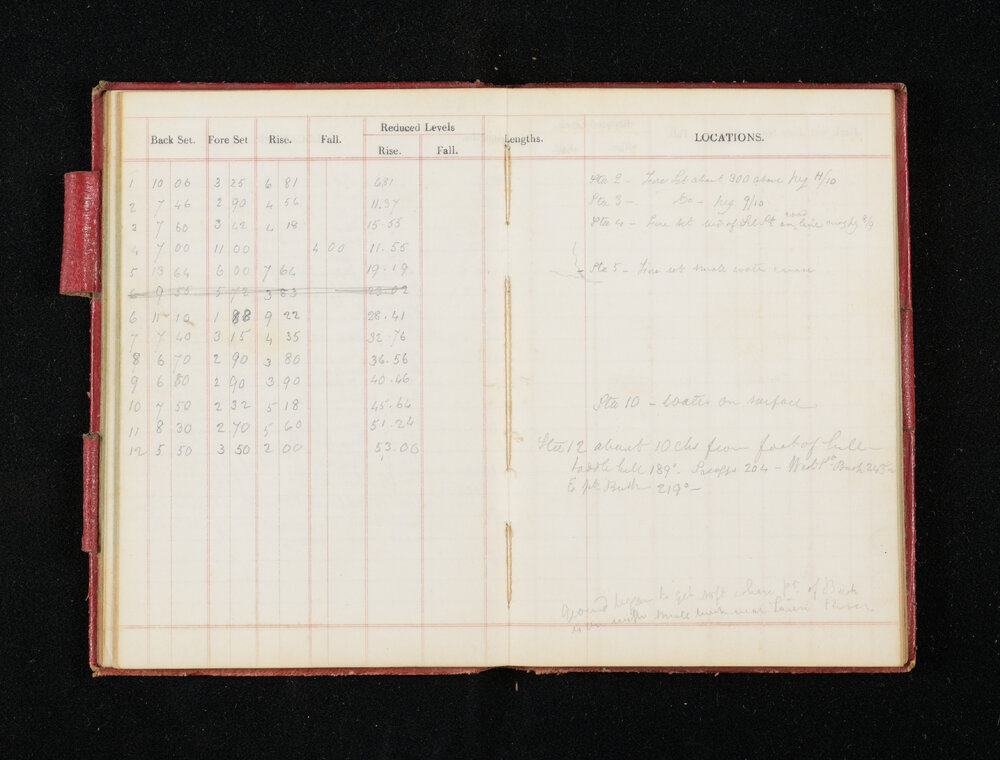 Back Set. Fore Set Rise. Fall. Reduced Levels Rise. Fall. Lengths. LOCATIONS.
1 10 06 3 25 6 81 6.81 Sta 2 - Fore Set about 300 above peg 11/10
2 7 46 2 90 4 56 11.37 Sta 3 - Do - peg 9/10
3 7 60 3 42 4 18 15.55 Sta 4 - Fore set on line road
4 7 00 11 00 4 00 11.55
5 13 64 6 00 7 64 19.19 Sta 5 - Fore set small water course
6 9 55 5 72 3 83 23.02
6 11 10 1 88 9 22 28.41
7 7 40 3 15 4 35 32.76
8 6 70 2 90 3 80 36.56
9 6 80 2 90 3 90 40.46
10 7 50 2 32 5 18 45.64 Sta 10 - Water on surface
11 8 30 2 70 5 60 51.24
12 5 50 3 50 2 00 53.06 Sta 12 about 10 chs from foot of hill
Saddle hill 189° 204 - West Pt Bush 243°
E pk Bush 219°
Ground began to get soft where pt. of Bush
is on with small bush near River